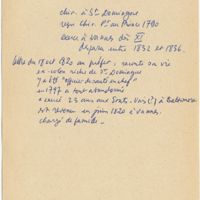 chir. à St Domingue
reçu chir. Pal au Prince 1790
exerce à Vannes dès XI
disparu entre 1832 et 1836.
lettre du 18 oct 1820 au préfet, raconte sa vie
ex-colon riche de St Domingue
y a été "officier de santé en chef"
en 1797 a tout abandonné
a exercé 23 ans aux Etats-Unis à Baltimore
est revenu en juin 1820 à Vannes.
chargé de famille.